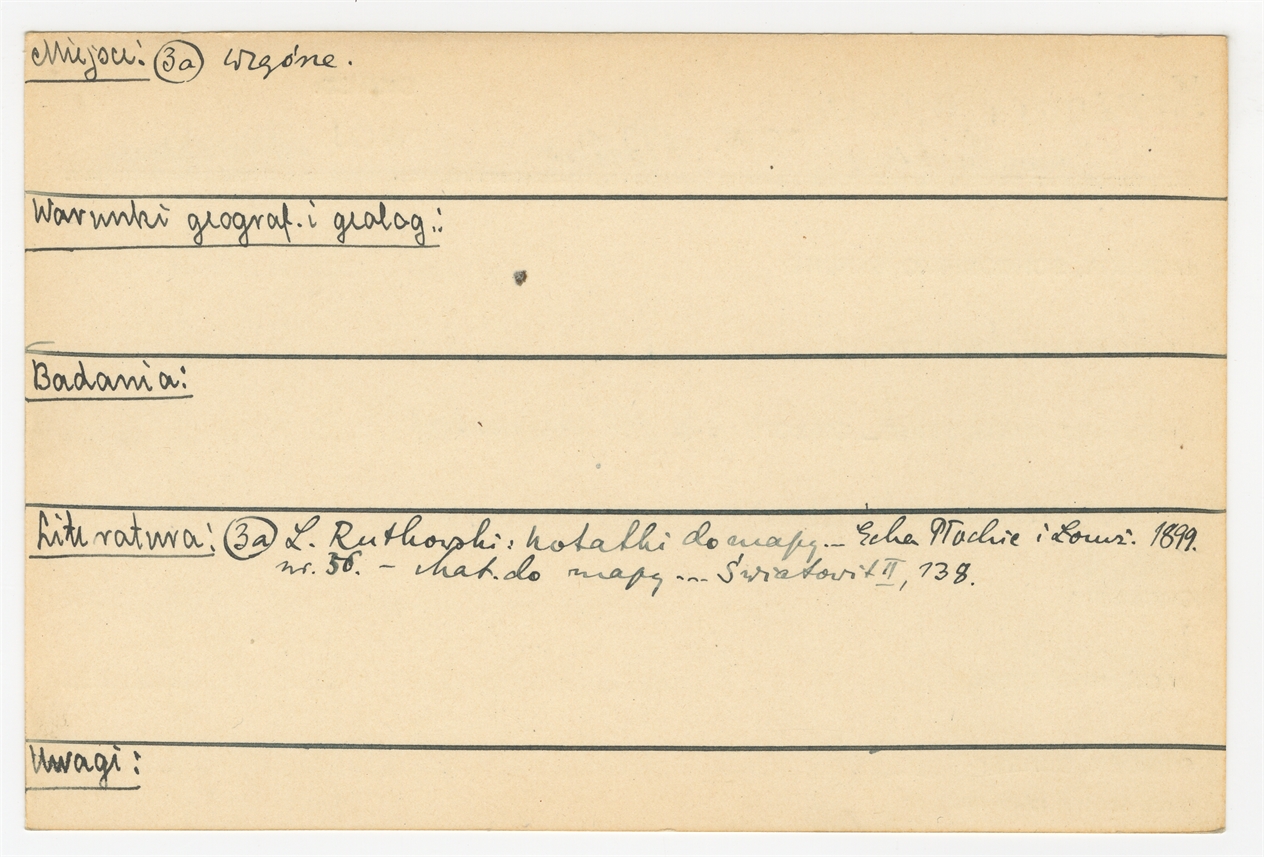 Miejsce: (3a) wzgórze.
Warunki geograf. i geolog.:
Badania:
Literatura: (3a) L. Rutkowski: Notatki do mapy... Echa Płockie i Łomż. 1899.
nr. 56. – Mat. do mapy ... Światowit II, 138.
Uwagi: